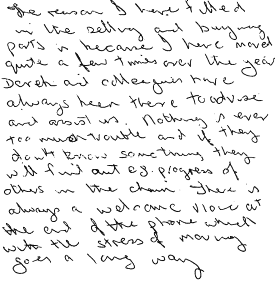 The reason I have filled
in the selling and buying
parts is because I have moved
quite a few times over the year
Derek and colleagues have
always been there to advise
and assist us. Nothing is ever
too much trouble and if they
don't know something they
will find out e.g. progress of
others in the chain. There is
always a welcome voice at
the end of the phone which
with the stress of moving
goes a long way